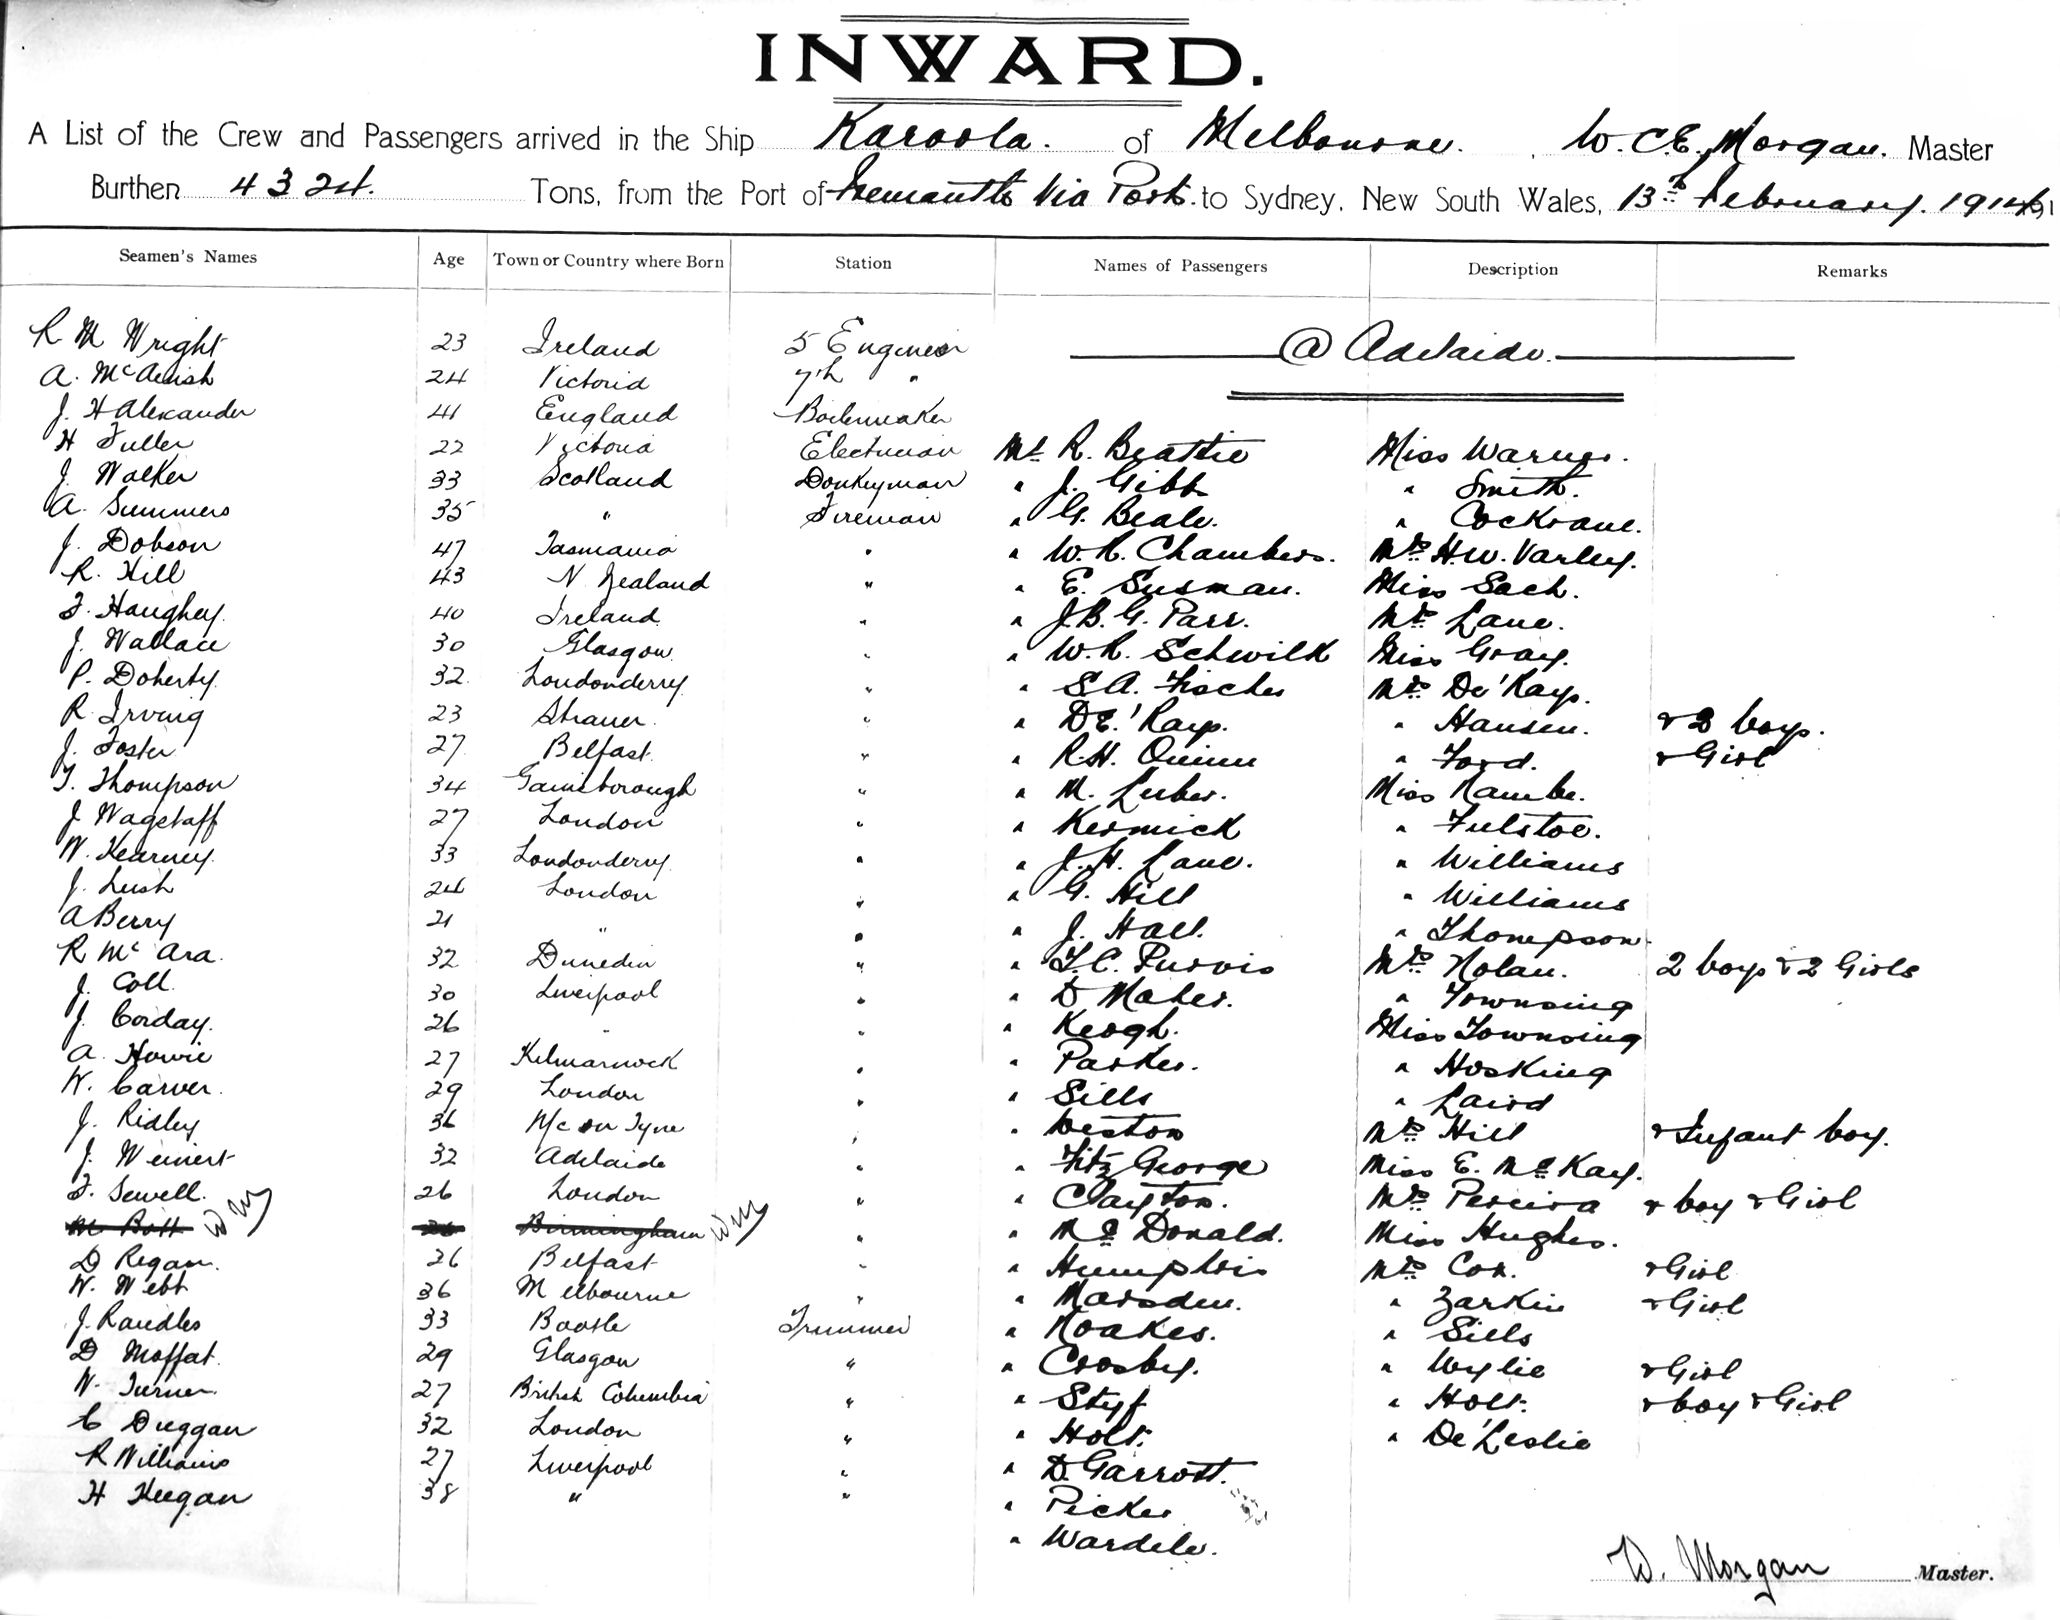 INWARD.
A List of the Crew and Passengers arrived in the Ship Karoola. of Melbourne. W. C. E. Morgan. Master
Burthen 4324. Tons, from the Port of Fremantle Via Ports. to Sydney, New South Wales, 13th February. 1914
Seamen's Names Age Town or Country where Born Station Names of Passengers Description Remarks
R M Wright 23 Ireland 5 Engineer @ Adelaide.
A. McAinsh 24 Victoria 7th "
J. H Alexander 41 England Boilermaker
H Fuller 22 Victoria Electrician Mr R. Beattie Miss Warner.
J. Walker 33 Scotland Donkeyman " J. Gibb " Smith.
A. Summers 35 " Fireman " G. Beale. " Cockrane.
J. Dobson 47 Tasmania " " W. R. Chambers. Mrs H. W. Varley.
R. Hill 43 N. Zealand " " E. Susman. Miss Sach.
F. Haughey. 40 Ireland " " J. B. G. Parr. Mrs Lane.
J. Wallace 30 Glasgow " " W. R. Schwilk Miss Gray.
P. Doherty. 32 Londonderry " " S. A. Fischer Mrs De'Kays.
R. Irving 23 " " DE'Kays. " Hansen. & 2 boys.
J. Foster 27 Belfast. " " R. H. Quinn " Ford. & Girl
T. Thompson 34 Gainsborough " " M. Luber. Miss
J. Wagstaff 27 London " " Kermick " Fulstoe.
W. Kearney. 33 Londonderry " " J. H. Lane. " Williams
J. Lush 24 London " " G. Hill " Williams
A Berry 21 " " " J. Hall. " Thompson.
R McAra. 32 Dunedin " " T. C. Purvis Mrs Nolan. 2 boys & 2 Girls
J. Coll 30 Liverpool " " D Maher. " Townsing
J. Corday. 26 " " " Keogh. Miss Townsing
A. Howie 27 Kilmarnock " " Parker. " Hosking
W. Carver. 29 London " " Sills " Laird
J. Ridley 36 N/c on Tyne " " Weston Mrs Hill & Infant boy.
J. Weinert 32 Adelaide " " Fitz George Miss E. McKay.
F. Sewell. 26 London " " Clayton. Mrs Pereira & boy & Girl
M Bott 26 Birmingham " " McDonald. Miss Hughes.
D Regan. 26 Belfast " " Humphris Mrs Cox. & Girl
W. Webb 36 Melbourne " " Marsden. " Zarkin & Girl
J. Randles 33 Bootle Trimmer " Noakes. " Sills
D Moffat. 29 Glasgow " " Crosby. " Wylie & Girl
W. Turner 27 British Columbia " " Styf " Holt. & boy & Girl
C Duggan 32 London " " Holt. " De'Leslie
R Williams 27 Liverpool " " D. Garrott.
H Keegan 38 " " " Picker
" Wardele.
W. Morgan Master.